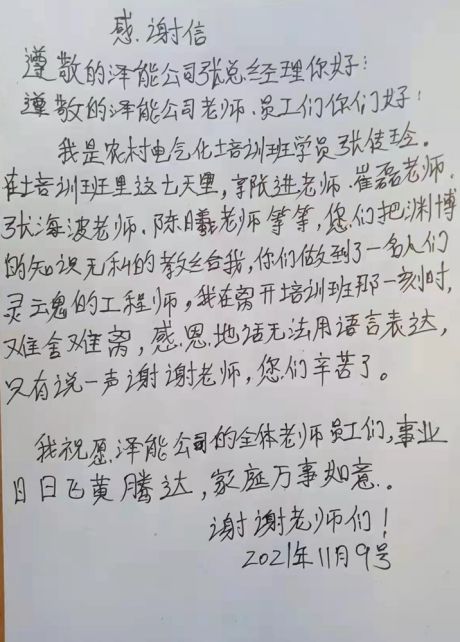 感谢信
尊敬的泽能公司张总经理你好:
尊敬的泽能公司老师、员工们你们好:
我是农村电气化培训班学员张佳玲。
在培训班里这七天里,享张进老师、崔磊老师、
张海波老师、陈曦老师等等,您们把渊博
的知识无私的教给我,你们做到了一名人们
灵魂的工程师,我在离开培训班那一刻时,
难舍难离,感恩地话无法用语言表达,
只有说一声谢谢老师,您们辛苦了。
我祝愿泽能公司的全体老师员工们,事业
日日飞黄腾达,家庭万事如意。
谢谢老师们!
2021年11月9号